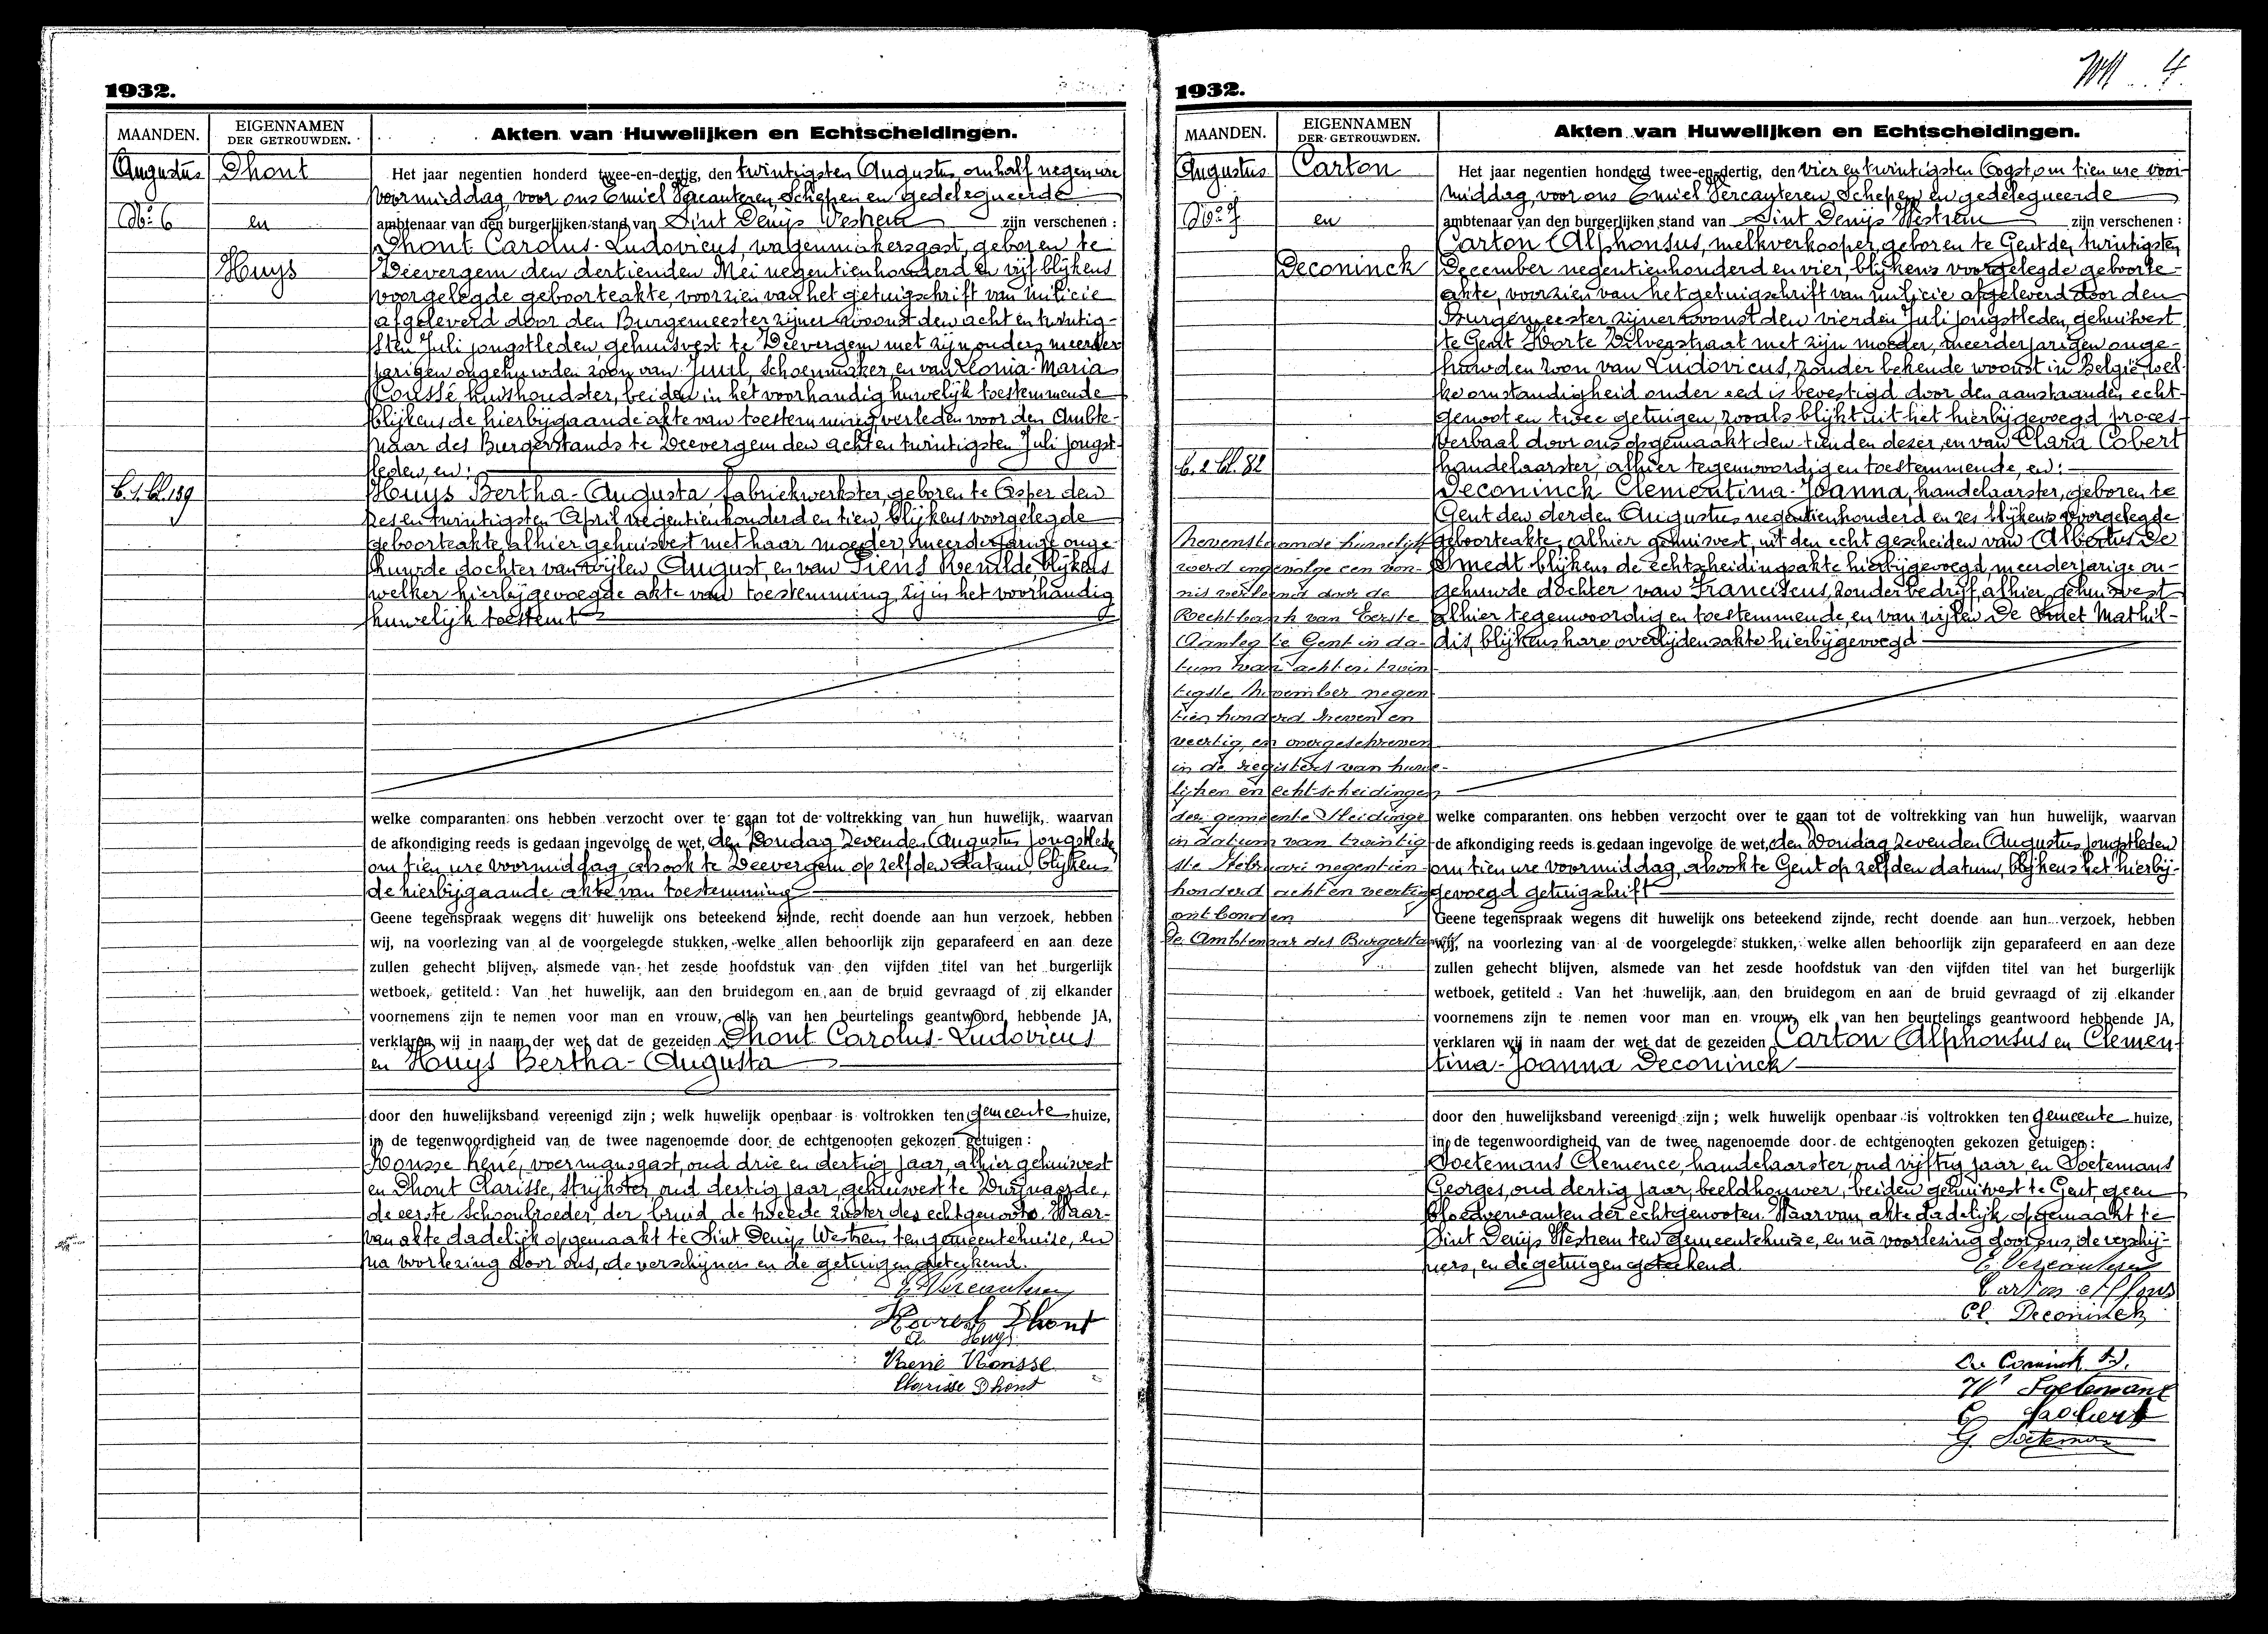 1932.
MAANDEN.
EIGENNAMEN
DER GETROUWDEN.
Akten van Huwelijken en Echtscheidingen.
Augustus
Dhont
No 6
en
Huys
B. 1. bl. 139
Het jaar negentien honderd twee-en-dertig, den twintigsten Augustus, om half negen ure
voormiddag, voor ons Emiel Vercauteren, Schepen en gedelegueerde
ambtenaar van den burgerlijken stand van Sint Denijs Westrem zijn verschenen :
Dhont Carolus-Ludovicus, wagenmakersgast, geboren te
Deevergem den dertienden Mei negentienhonderd en vijf blijkens
voorgelegde geboorteakte, voorzien van het getuigschrift van milicie
afgeleverd door den Burgemeester zijner woonst den acht en twintig-
sten Juli jongstleden, gehuisvest te Deevergem met zijn ouders, meerder
jarigen ongehuwden zoon van Juul, Schoenmaker, en van Leonia-Maria
Coussé, huishoudster, beiden in het voorhandig huwelijk toestemmende
blijkens de hierbijgaande akte van toestemming verleden voor den Ambte-
naar des Burgerstands te Deevergem den acht en twintigsten Juli jongst-
leden, en:
Huys Bertha-Augusta, fabriekwerkster, geboren te Asper den
zes en twintigsten April negentienhonderd en tien, blijkens voorgelegde
geboorteakte, alhier gehuisvest met haar moeder, meerderjarige onge-
huwde dochter van wijlen August, en van Piens Remilde, blijkens
welker hierbijgevoegde akte van toestemming zij in het voorhandig
huwelijk toestemt
welke comparanten ons hebben verzocht over te gaan tot de voltrekking van hun huwelijk, waarvan
de afkondiging reeds is gedaan ingevolge de wet, den Zondag zevenden Augustus jongstleden
om tien ure voormiddag, alsook te Deevergem op zelfden datum, blijkens
de hierbijgaande akte van toestemming
Geene tegenspraak wegens dit huwelijk ons beteekend zijnde, recht doende aan hun verzoek, hebben
wij, na voorlezing van al de voorgelegde stukken, welke allen behoorlijk zijn geparafeerd en aan deze
zullen gehecht blijven, alsmede van het zesde hoofdstuk van den vijfden titel van het burgerlijk
wetboek, getiteld : Van het huwelijk, aan den bruidegom en aan de bruid gevraagd of zij elkander
voornemens zijn te nemen voor man en vrouw, elk van hen beurtelings geantwoord hebbende JA,
verklaren wij in naam der wet dat de gezeiden Dhont Carolus-Ludovicus
en Huys Bertha-Augusta
door den huwelijksband vereenigd zijn ; welk huwelijk openbaar is voltrokken ten gemeente huize,
in de tegenwoordigheid van de twee nagenoemde door de echtgenooten gekozen getuigen :
René, voermansgast, oud drie en dertig jaar, alhier gehuisvest
en Dhont Clarisse, strijkster, oud dertig jaar, gehuisvest te Zwijnaarde,
de eerste schoonbroeder der bruid, de tweede zuster des echtgenoots. Waar-
van akte dadelijk opgemaakt te Sint Denijs Westrem ten gemeentehuize, en
na voorlezing door ons, de verschijners en de getuigen geteekend.
E. Vercauteren
Karel Dhont
Huys
René
Clarisse Dhont
4
1932.
MAANDEN.
EIGENNAMEN
DER GETROUWDEN.
Akten van Huwelijken en Echtscheidingen.
Augustus
Carton
No 7
en
Deconinck
B. 2 bl. 82
Nevenstaande huwelijk
werd ingevolge een von-
nis verleend door de
Rechtbank van Eerste
Aanleg te Gent in da-
tum van acht en twin
tigste November negen
tien honderd zeven en
veertig, en overgeschreven
in de registers van huwe-
lijken en echtscheidingen
der gemeente Sleidinge
in datum van twintig-
ste Februari negentien
honderd acht en veertig
ontbonden
De Ambtenaar des Burgerstands
Het jaar negentien honderd twee-en-dertig, den vier en twintigsten Oogst, om tien ure voor-
middag, voor ons Emiel Vercauteren, Schepen en gedelegueerde
ambtenaar van den burgerlijken stand van Sint Denijs Westrem zijn verschenen :
Carton Alphonsus, melkverkooper, geboren te Gent den twintigsten
December negentienhonderd en vier, blijkens voorgelegde geboorte-
akte, voorzien van het getuigschrift van milicie afgeleverd door den
Burgemeester zijner woonst den vierden Juli jongstleden, gehuisvest
te Gent Korte Dilverstraat met zijn moeder, meerderjarigen onge-
huwden zoon van Ludovicus, zonder bekende woonst in België, wel-
ke omstandigheid onder eed is bevestigd door den aanstaanden echt-
genoot en twee getuigen, zooals blijkt uit het hierbijgevoegd proces-
verbaal door ons opgemaakt den tienden dezer, en van Clara Cobert
handelaarster, alhier tegenwoordig en toestemmende, en:
Deconinck Clementina-Joanna, handelaarster, geboren te
Gent den derden Augustus negentienhonderd en zes blijkens voorgelegde
geboorteakte, alhier gehuisvest, uit den echt gescheiden van Albertus De
Smedt blijkens de echtscheidingsakte hierbijgevoegd, meerderjarige on-
gehuwde dochter van Franciscus, zonder bedrijf, alhier gehuisvest
alhier tegenwoordig en toestemmende, en van wijlen De Smet Mathil-
dis, blijkens hare overlijdensakte hierbijgevoegd
welke comparanten ons hebben verzocht over te gaan tot de voltrekking van hun huwelijk, waarvan
de afkondiging reeds is gedaan ingevolge de wet, den Zondag zevenden Augustus jongstleden
om tien ure voormiddag, alsook te Gent op zelfden datum, blijkens het hierbij-
gevoegd getuigschrift
Geene tegenspraak wegens dit huwelijk ons beteekend zijnde, recht doende aan hun verzoek, hebben
wij, na voorlezing van al de voorgelegde stukken, welke allen behoorlijk zijn geparafeerd en aan deze
zullen gehecht blijven, alsmede van het zesde hoofdstuk van den vijfden titel van het burgerlijk
wetboek, getiteld : Van het huwelijk, aan den bruidegom en aan de bruid gevraagd of zij elkander
voornemens zijn te nemen voor man en vrouw, elk van hen beurtelings geantwoord hebbende JA,
verklaren wij in naam der wet dat de gezeiden Carton Alphonsus en Clemen-
tina-Joanna Deconinck
door den huwelijksband vereenigd zijn ; welk huwelijk openbaar is voltrokken ten gemeente huize,
in de tegenwoordigheid van de twee nagenoemde door de echtgenooten gekozen getuigen :
Soetemans Clemence, handelaarster, oud vijftig jaar, en Soetemans
Georges, oud dertig jaar, beeldhouwer, beiden gehuisvest te Gent, geen
bloedverwanten der echtgenooten. Waarvan akte dadelijk opgemaakt te
Sint Denijs Westrem ten gemeentehuize, en na voorlezing door ons, de verschij-
ners, en de getuigen geteekend.
E. Vercauteren
Carton Alfons
Cl. Deconinck
De Coninck
Soetemans
G. Soetemans